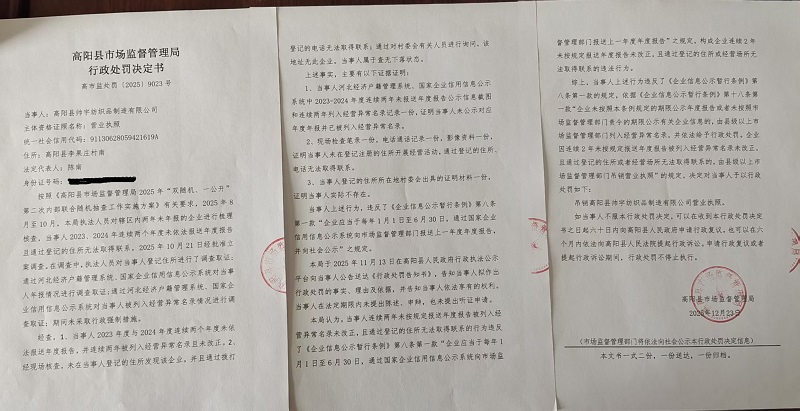 高阳县市场监督管理局
行政处罚决定书
高市监处罚〔2025〕9023号
当事人：高阳县帅宇纺织品制造有限公司
主体资格证照名称：营业执照
统一社会信用代码：91130628059421619A
住所：高阳县李果庄村南
法定代表人：陈南
身份证号码：
按照《高阳县市场监督管理局2025年“双随机、一公开”
第二次内部联合随机抽查工作实施方案》有关要求，2025年8
月至10月，本局执法人员对辖区内两年未年报的企业进行梳理
核查。当事人2023年、2024年连续两个年度未依法报送年度报告
且通过登记的住所无法取得联系。2025年10月21日经批准立
案调查。在调查中，执法人员对当事人登记住所进行了调查取证；
通过河北经济户籍管理系统、国家企业信用信息公示系统对当事
人年报情况进行调查取证；通过河北经济户籍管理系统、国家企
业信用信息公示系统对当事人被列入经营异常名录情况进行调
查取证；期间未采取行政强制措施。
经查，1、当事人2023年度与2024年度连续两个年度未依
法报送年度报告，并连续两年被列入经营异常名录且未改正。2、
经现场核查，未在当事人登记的住所发现该企业，并且通过拨打
登记的电话无法取得联系；通过对村委会有关人员进行询问，该
地址无此企业。当事人属于查无下落状态。
上述事实，主要有以下证据证明：
1、当事人河北经济户籍管理系统、国家企业信用信息公示
系统中2023-2024年度连续两年未报送年度报告公示信息截图
和连续两年列入经营异常名录记录一份，证明当事人未公示对应
年度年报并已被列入经营异常名录。
2、现场检查笔录一份，电话通话记录一份，影像资料一份，
证明当事人未在登记注册的住所开展经营活动，通过登记的住所、
电话无法取得联系。
3、当事人登记的住所所在地村委会出具的证明材料一份，
证明当事人实际不存在。
当事人上述行为，违反了《企业信息公示暂行条例》第八条
第一款“企业应当于每年1月1日至6月30日，通过国家企业
信用信息公示系统向市场监督管理部门报送上一年度年度报告，
并向社会公示”之规定。
本局于2025年11月13日在高阳县人民政府行政执法公示
平台向当事人公告送达《行政处罚告知书》，告知当事人拟作出
行政处罚的事实、理由及依据，并告知当事人依法享有的权利。
当事人在法定期限内未提出陈述、申辩，也未提出听证申请。
本局认为，当事人连续两年未按规定报送年度报告被列入经
营异常名录未改正，且通过登记的住所无法取得联系的行为违反
了《企业信息公示暂行条例》第八条第一款“企业应当于每年1
月1日至6月30日，通过国家企业信用信息公示系统向市场监
督管理部门报送上一年度年度报告”之规定，构成企业连续2年
未按规定报送年度报告未改正，且通过登记的住所或经营场所无
法取得联系的违法行为。
综上，当事人上述行为违反了《企业信息公示暂行条例》第
八条第一款的规定，依据《企业信息公示暂行条例》第十八条第
一款“企业未按照本条例规定的期限公示年度报告或者未按照市场
监督管理部门责令的期限公示有关企业信息的，由县级以上市
场监督管理部门列入经营异常名录，并依法给予行政处罚。企业
因连续2年未按规定报送年度报告被列入经营异常名录未改正，
且通过登记的住所或者经营场所无法取得联系的，由县级以上市
场监督管理部门吊销营业执照”的规定，决定对当事人予以行政
处罚如下：
吊销高阳县帅宇纺织品制造有限公司营业执照。
如当事人不服本行政处罚决定，可以在收到本行政处罚决定
书之日起六十日内向高阳县人民政府申请行政复议，也可以在六
个月内依法向高阳县人民法院提起行政诉讼。申请行政复议或者
提起行政诉讼期间，行政处罚不停止执行。
高阳县市场监督管理局
2025年12月23日
（市场监督管理部门将依法向社会公示本行政处罚决定信息）
本文书一式二份，一份送达，一份归档。